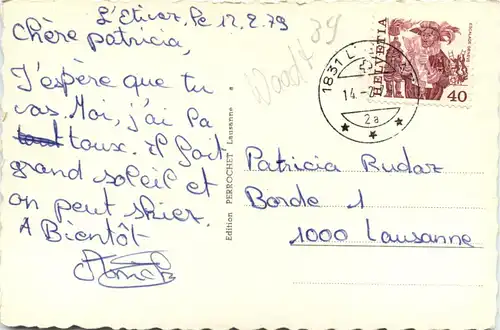 L'Etivaz, le 12.2.79
Chère Patricia,
J'espère que tu
vas. Moi, j'ai la
toux. Il fait
grand soleil et
on peut skier.
A Bientôt
Edition PERROCHET Lausanne
1831 L'
14.-2
2a
HELVETIA
40
Patricia Rudaz
Borde 1
1000 Lausanne